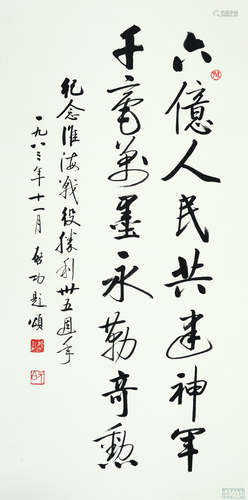 六億人民共建神軍
千毫萬墨永勒奇勲
紀念淮海戰役勝利卅五週年
一九八三年十一月 啟功題頌